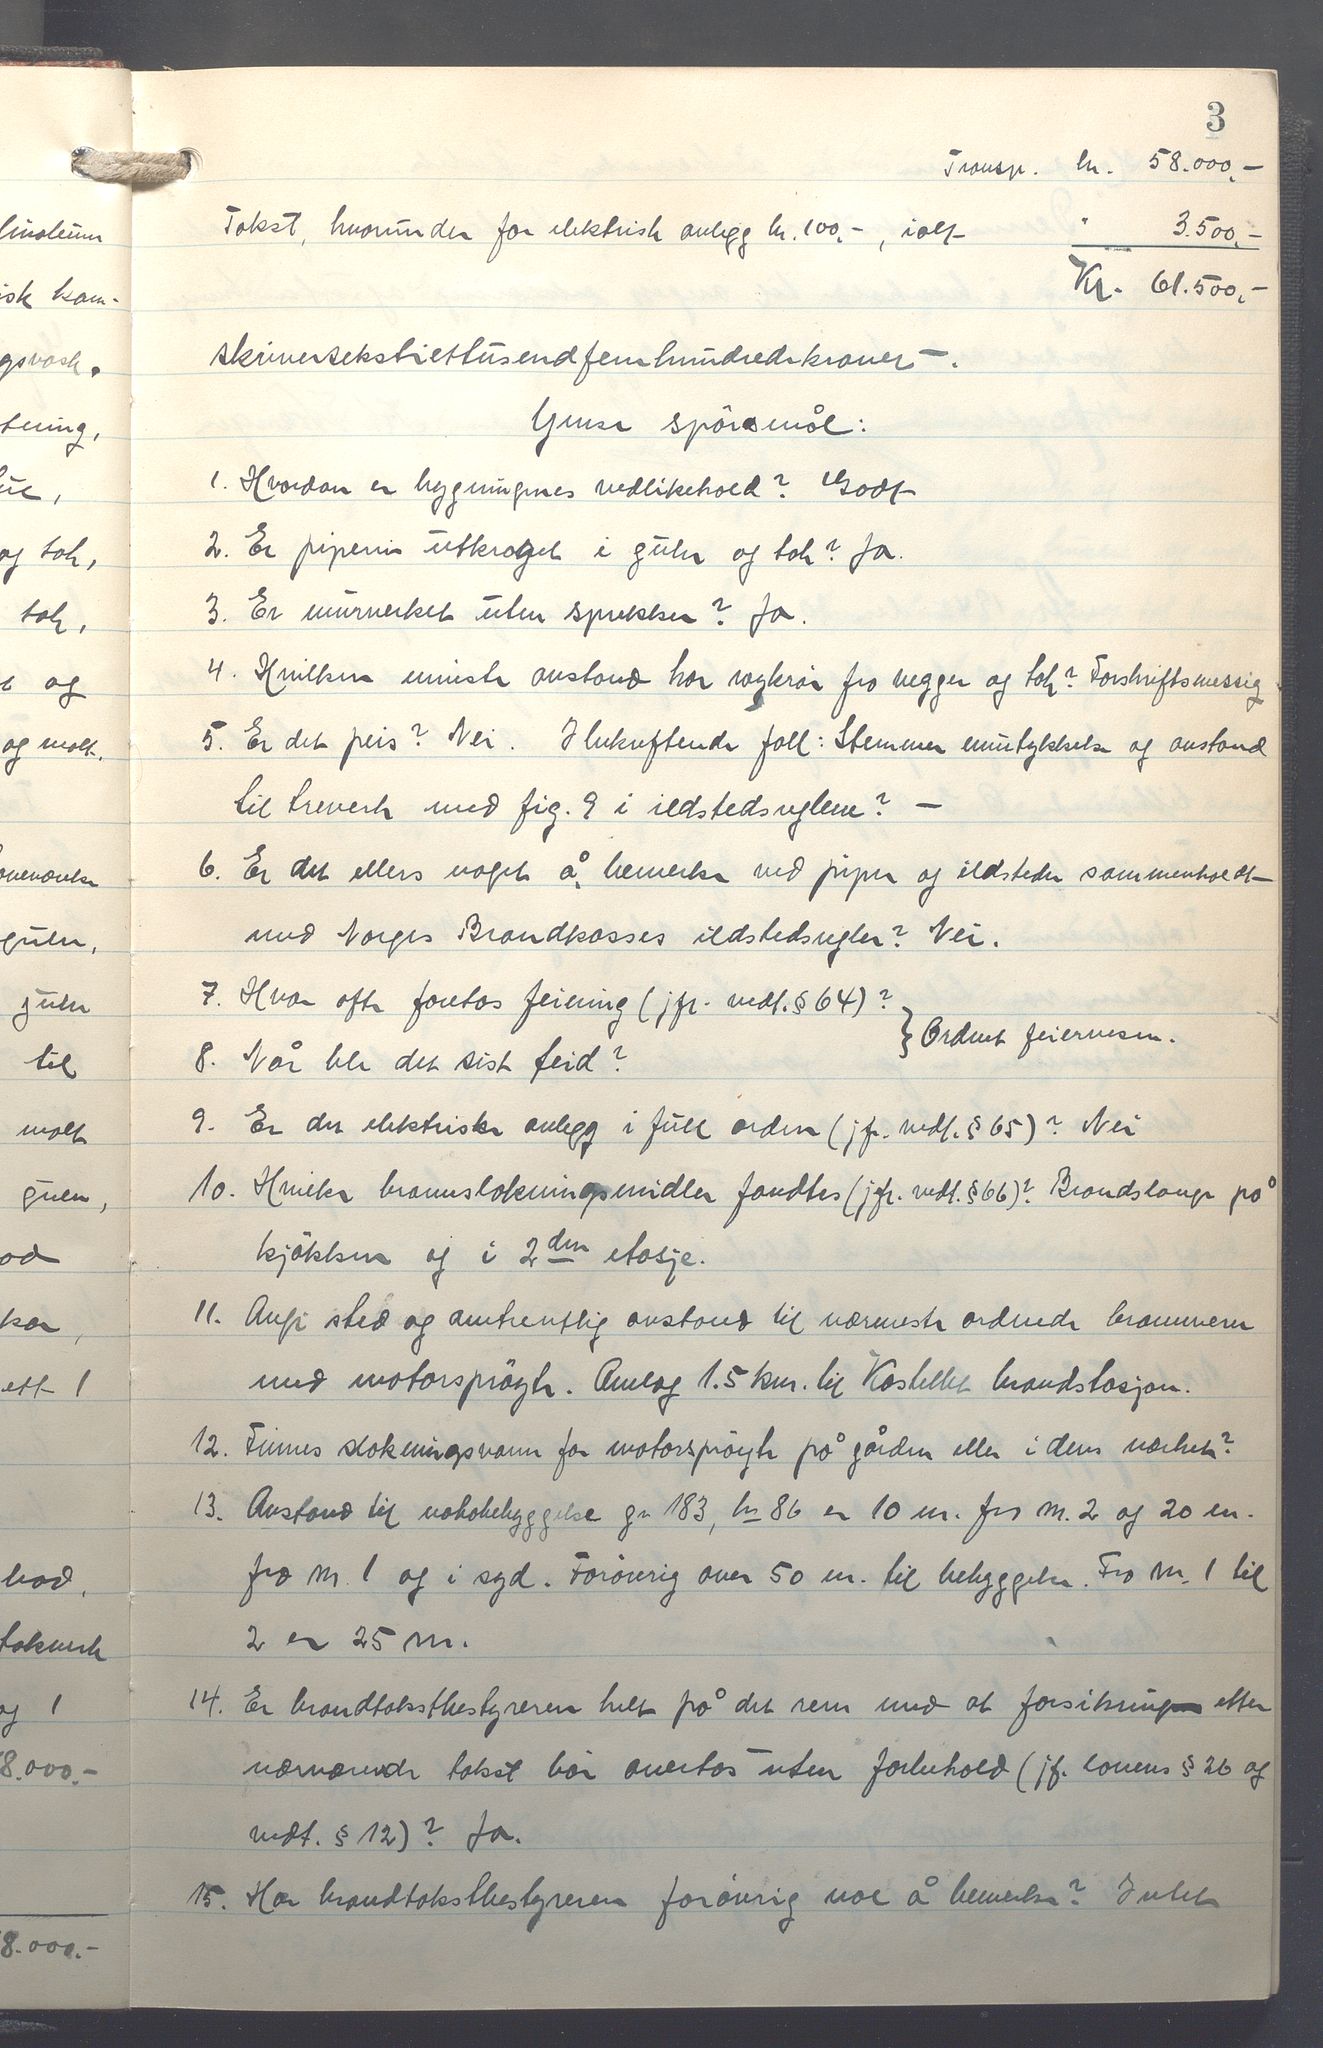 linoleum
isk kom-
gsvask.
tning,
og tak,
tak,
og
og malt.
gulv,
gulv
til
malt
gulv,
ett 1
bad,
takverk
og 1
8.000.-
8.000.-
3
Transp. kr. 58.000,-
Takst, hvorunder for elektrisk anlegg kr. 100,-, ialt " 3.500,-
Kr. 61.500,-
skriver sekstiettusendfemhundredekroner -.
Ymse spörsmål:
1. Hvordan er bygningenes vedlikehold? Godt
2. Er pipene utkraget i gulv og tak? Ja.
3. Er murverket uten sprekker? Ja.
4. Hvilken minste avstand har røykrör fra vegger og tak? Forskriftsmessig
5. Er det peis? Nei. I bekreftende fall: Stemmer murtykkelse og avstand
til treverk med fig. 9 i ildstedsreglene? -
6. Er det ellers noget å bemerke ved piper og ildsteder sammenholdt
med Norges Brandkasses ildstedsregler? Nei.
7. Hvor ofte foretas feiening (jfr. vedt. § 64)?
} Ordnet feiervesen.
8. Når ble det sist feid?
9. Er det elektriske anlegg i full orden (jfr. vedt. § 65)? Nei
10. Hvilke brannslokningsmidler fandtes (jfr. vedt. § 66)? Brandslange på
kjökken og i 2den etasje.
11. Angi sted og omtrentlig avstand til nærmeste ordnede brannvern
med motorspröyte. Omlag 1.5 km. til Kastellet brandstasjon.
12. Finnes slokningsvann for motorspröyte på gården eller i dens nærhet?
13. Avstand til nabobebyggelse gr 183, br 86 er 10 m. fra M. 2 og 20 m.
fra M. 1 og i syd. Forövrig over 50 m. til bebyggelse. Fra M. 1 til
2 er 25 m.
14. Er brandtakstbestyreren helt på det rene med at forsikringen etter
nærværende takst bör overtas uten forbehold (jf. lovens § 26 og
vedt. § 12)? Ja.
15. Har brandtakstbestyreren forövrig noe å bemerke? Intet